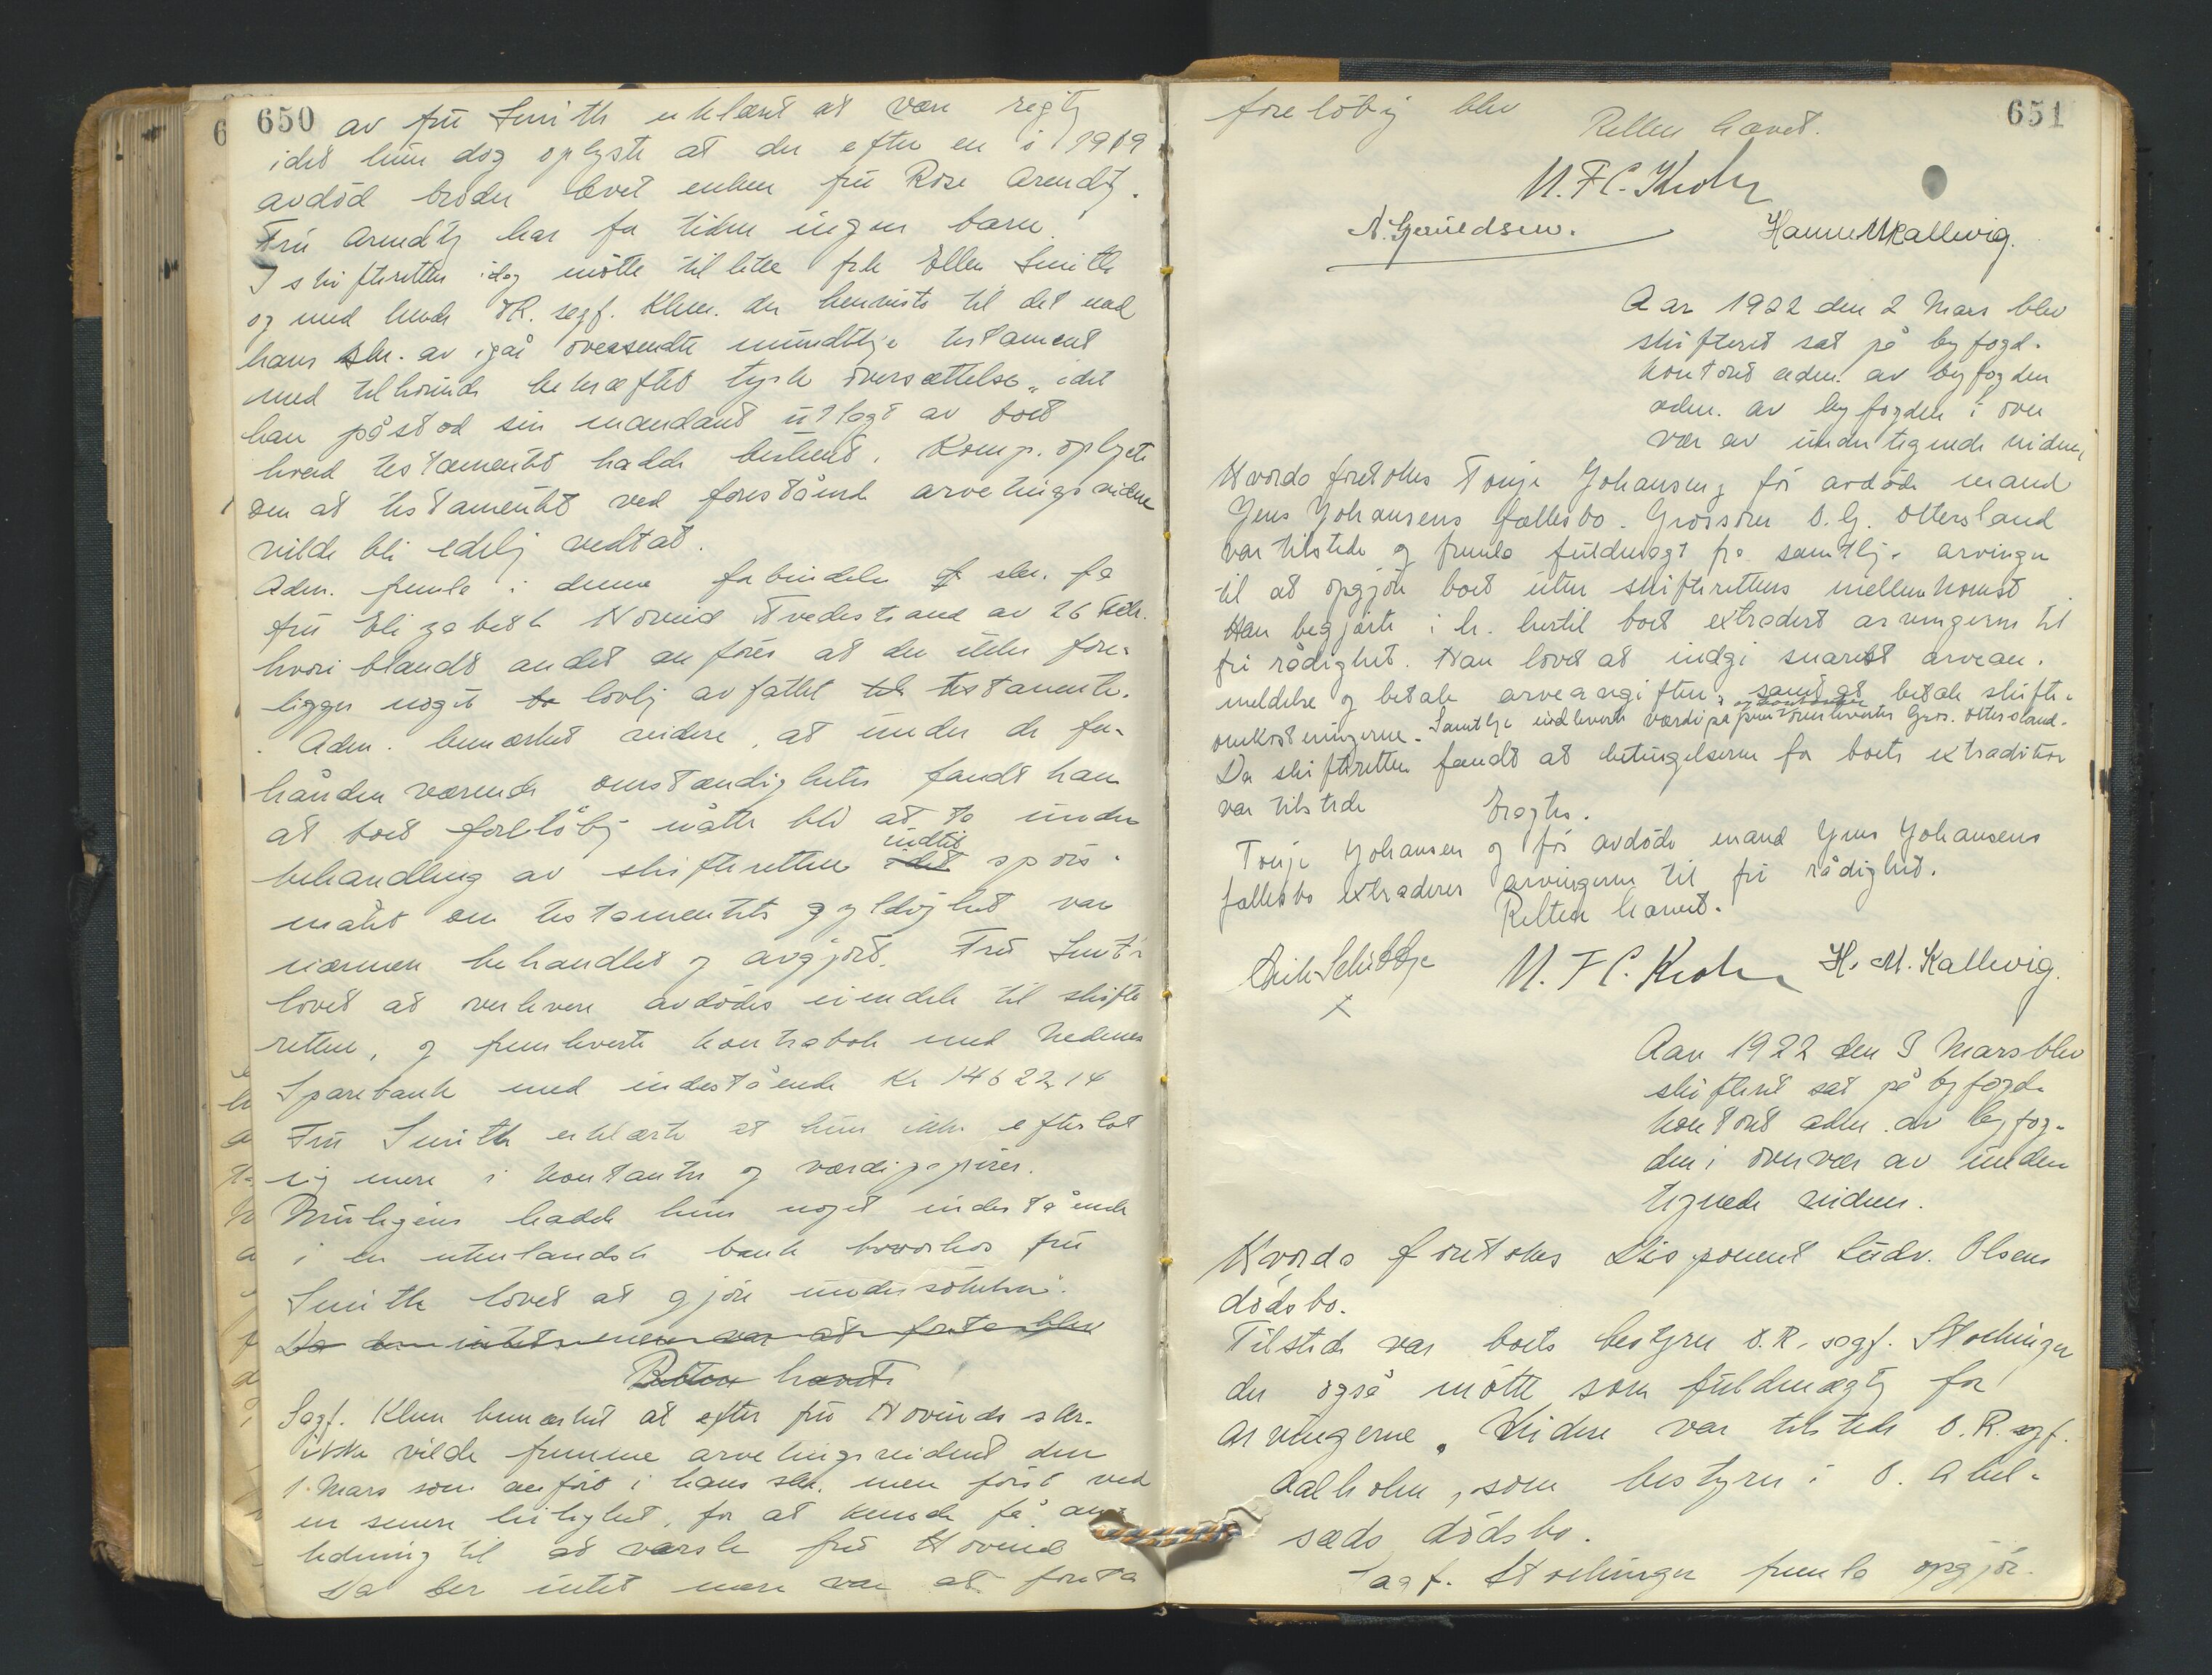 650
av frü Smith erklært at være rigtig
idet hün dog oplyste at der efter en i 1919
avdöd broder levet enken frü Rose Arendtz.
Frü Arendtz har for tiden ingen barn.
I skifteretten idag mötte tilstede frk Ellen Smith
og med hende OR. sagf. Klem. der henviste til det med
hans skr. av igår oversendte mündtlige testament
med tilhörende bekræftet tysk oversættelse, idet
han påstod sin mandant ütlagt av boet
hvad testamentet hadde bestemt. Komp. oplyste
om at testamentet ved forestående arvetingsvidne
vilde bli edelig vedtat.
Adm. fremla i denne forbindelse skr. fra
frü Elizabeth Hovind Tvedestrand av 26 Febr.
hvori blandt andet anföres at der ikke fore-
ligger noget lovlig avfattet testamente.
Adm. bemærket videre, at ünder de for-
hånden værende omstændigheter fandt han
at boet foreløbig måtte bli at ta ünder
behandling av skifteretten indtil spörs-
målet om testamentets gyldighet var
nærmere behandlet og avgjort. Frü Smith
lovet at overlevere avdödes eiendele til skifte
retten, og fremleverte kontrabok med Nedenes
Sparebank med indestående Kr 14622,14
Frü Smith erklærte at hün ikke efterlot
sig mere i kontanter og værdipapirer.
Müligens hadde hün noget indestående
i en utenlandsk bank hvorhos frü
Smith lovet at gjöre ündersökelser.
Da der intet mere var at foreta blev
Retten hævet
Sagf. Klem bemærket at efter frü Hovinds skr.
ikke vilde fremme arvetingsvidnet den
1 Mars som anfört i hans skr. men först ved
en senere leilighet, for at kunde få an-
ledning til at varsle frü Hovind
Da der intet mere var at foreta
651
foreløbig blev
Retten hævet.
N. F C. Krohn
N. Gjerüldsen. Hanne M Kallevig.
Aar 1922 den 2 Mars blev
skifteret sat på byfogd-
kontoret adm. av byfogden
adm. av byfogden i över
vær av ündertegnede vidner,
Hvorda foretokes Tonje Johansen og för avdöde mand
Jens Johansens fællesbo. Grosserer O. G. Ottersland
var tilstede og fremla füldmagt fra samtlige arvinger
til at opgjöre boet üten skifterettens mellemkomst
Han begjærte i h. hertil boet extradert arvingerne til
fri rådighet. Han lovet at indgi snarest arvean-
meldelse og betale arveavgiften, samt at betale skifte-
omkostningerne. Samtlige indleverte værdipapirer överlevertes Gros. Ottersland.
Da skifteretten fandt at betingelserne for boets extradition
var tilstede
Eragtes.
Tonje Johansen og för avdöde mand Jens Johansens
fællesbo extraderes arvingerne til fri rådighet.
Retten hævet.
Erik N. F C. Krohn H. M. Kallevig.
Aar 1922 den 3 Mars blev
skifteret sat på byfogd-
kontoret adm. av byfog-
den i övervær av ünder
tegnede vidner.
Hvorda foretokes Disponent Lüdv. Olsens
dödsbo.
Tilstede var boets bestyrer O.R. sagf. Stochinger
der også mötte som füldmægtig for
arvingerne. Videre var tilstede O.R. sagf.
Aalholm, som bestyrer i O. Abel-
sæds dödsbo.
Sagf. Stochinger fremla opgjör.